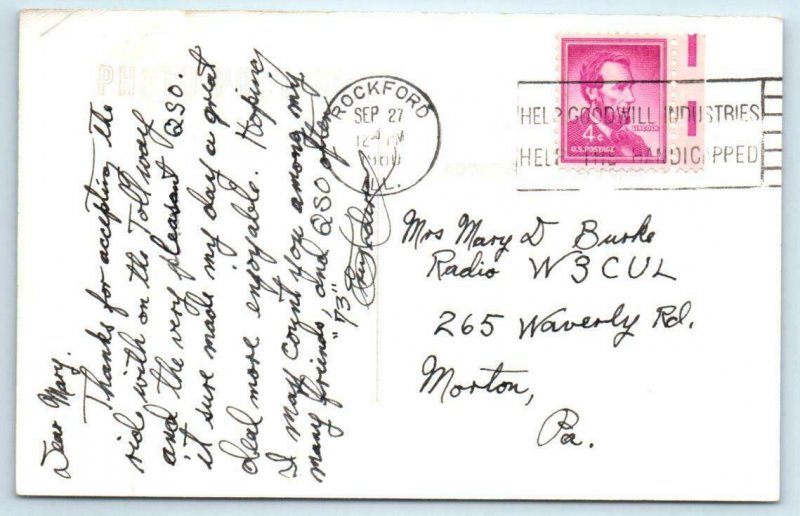 Dear Mary.
Thanks for accepting the
ride with on the Tollway
and the very pleasant QSO.
it sure made my day a great
deal more enjoyable. Hoping
I may count you among my
many friends, and QSO often
"73"
ROCKFORD
SEP 27
12 PM
1960
ILL.
HELP GOODWILL INDUSTRIES
HELP THE HANDICAPPED
4¢
LINCOLN
U.S. POSTAGE
Mrs Mary D Burke
Radio W3CUL
265 Waverly Rd.
Morton,
Pa.